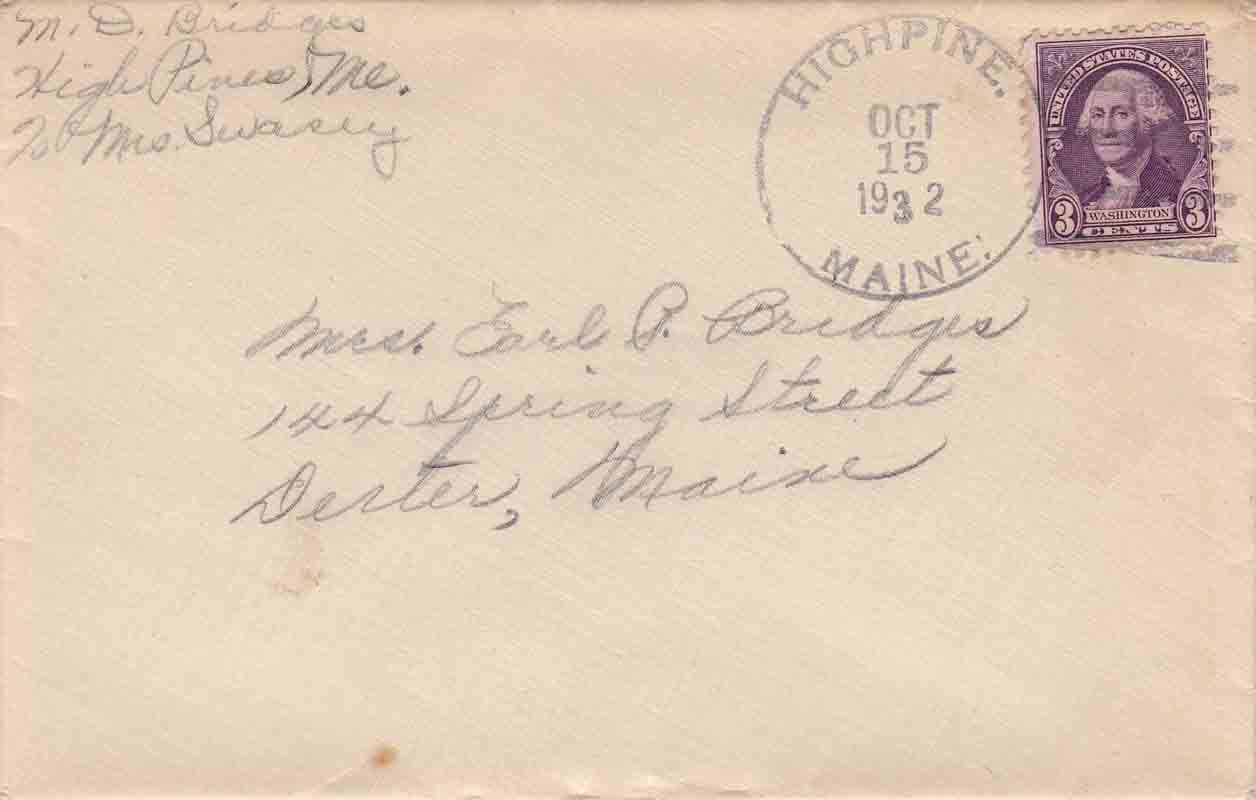 M. D. Bridges
High Pines, Me.
% Mrs. Swasey
HIGHPINE.
OCT
15
1932
MAINE.
UNITED STATES POSTAGE
3 WASHINGTON 3
CENTS
Mrs. Earl P. Bridges
144 Spring Street
Dexter, Maine